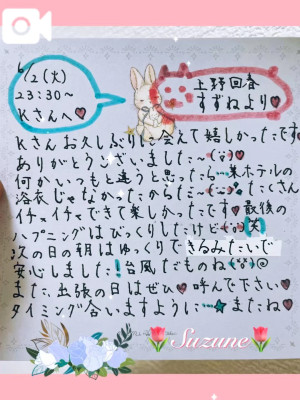 6/2(火)
23:30〜
Kさんへ♥
上野回春
すずねより♥
Kさんお久しぶりに会えて嬉しかったです
ありがとうございました
何かいつもと違うと思ったら…東ホテルの
浴衣じゃなかったからだ たくさん
イチャイチャできて楽しかったです♥最後の
ハプニングはびっくりしたけど
次の日の朝はゆっくりできるみたいで
安心しました!台風だものね
また、出張の日はぜひ♥呼んで下さい♥
タイミング合いますように…★またね♥
Suzune